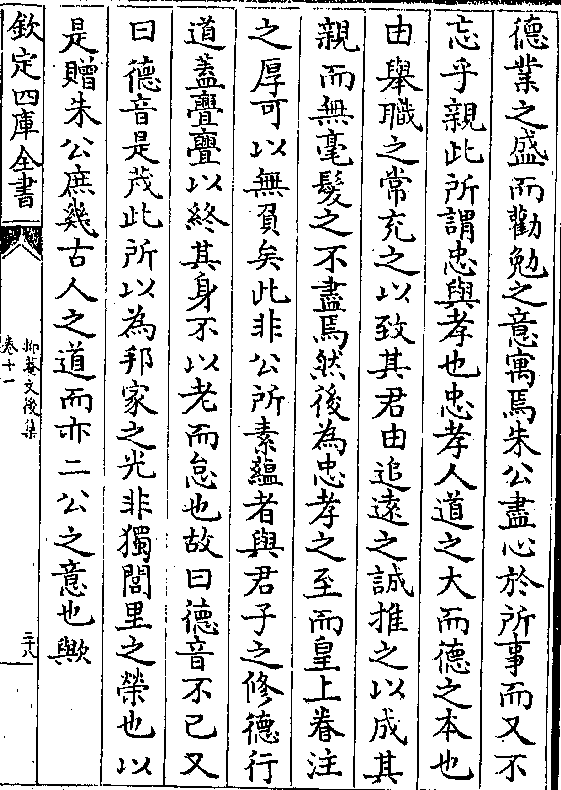 德業之盛而勸勉之意寓焉朱公盡心於所事而又不
忘乎親此所謂忠與孝也忠孝人道之大而德之本也
由舉職之常充之以致其君由追遠之誠推之以成其
親而無毫髮之不盡焉然後為忠孝之至而皇上眷注
之厚可以無負矣此非公所素蘊者與君子之修德行
道蓋亹亹以終其身不以老而怠也故曰德音不已又
曰德音是茂此所以為邦家之光非獨閭里之榮也以
是贈朱公庶幾古人之道而亦二公之意也歟
欽定四庫全書
抑菴文後集
卷十一
三八